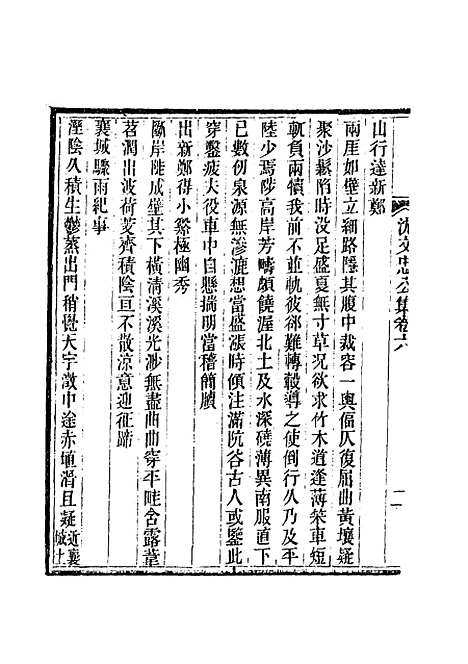 沈文忠公集卷六
二
山行達新鄭
兩厓如壁立細路隱其腹中裁容一輿偪仄復屈曲黃壤疑
聚沙鬆陷時沒足盛夏無寸草況欲求竹木道逢薄笨車短
軏負兩犢我前不並軌彼郤難轉轂導之使倒行久乃及平
陸少焉陟高岸芳疇頗饒渥北土及水深磽薄異南服直下
已數仞泉源無滲漉想當盛漲時傾注滿阬谷古人或鑒此
穿鑿疲夫役車中自懸揣明當稽簡牘
出新鄭得小谿極幽秀
斸岸陡成壁其下橫清溪溪光渺無盡曲曲穿平畦含露葦
苕潤出波荷芰齊積陰亘不散涼意迎征蹄
襄城驟雨紀事
溼陰久積生鬱蒸出門稍覺天宇澂中途赤埴滑且疑近襄城土